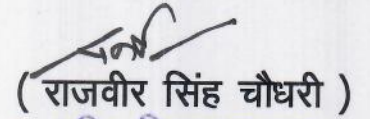 ( राजवीर सिंह चौधरी )